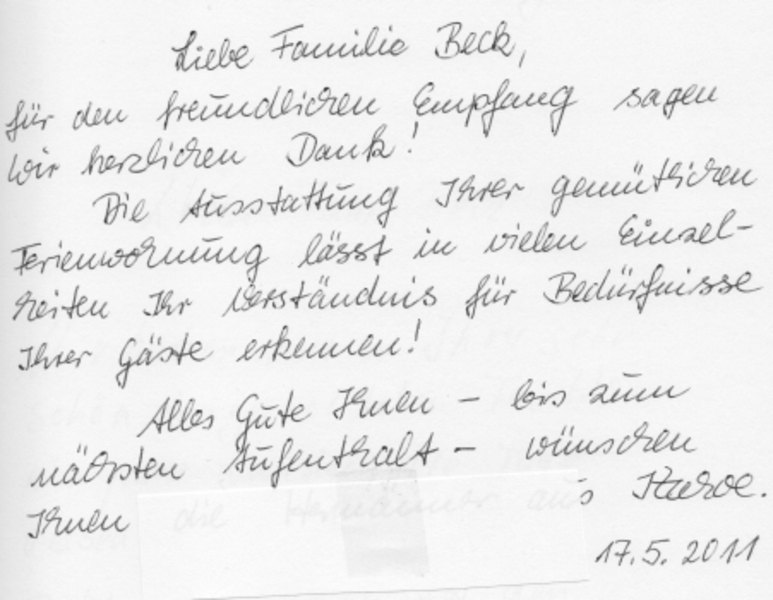 Liebe Familie Beck,
für den freundlichen Empfang sagen
wir herzlichen Dank!
Die Ausstattung Ihrer gemütlichen
Ferienwohnung lässt in vielen Einzel-
heiten Ihr Verständnis für Bedürfnisse
Ihrer Gäste erkennen!
Alles Gute Ihnen - bis zum
nächsten Aufenthalt - wünschen
Ihnen die aus
17.5.2011